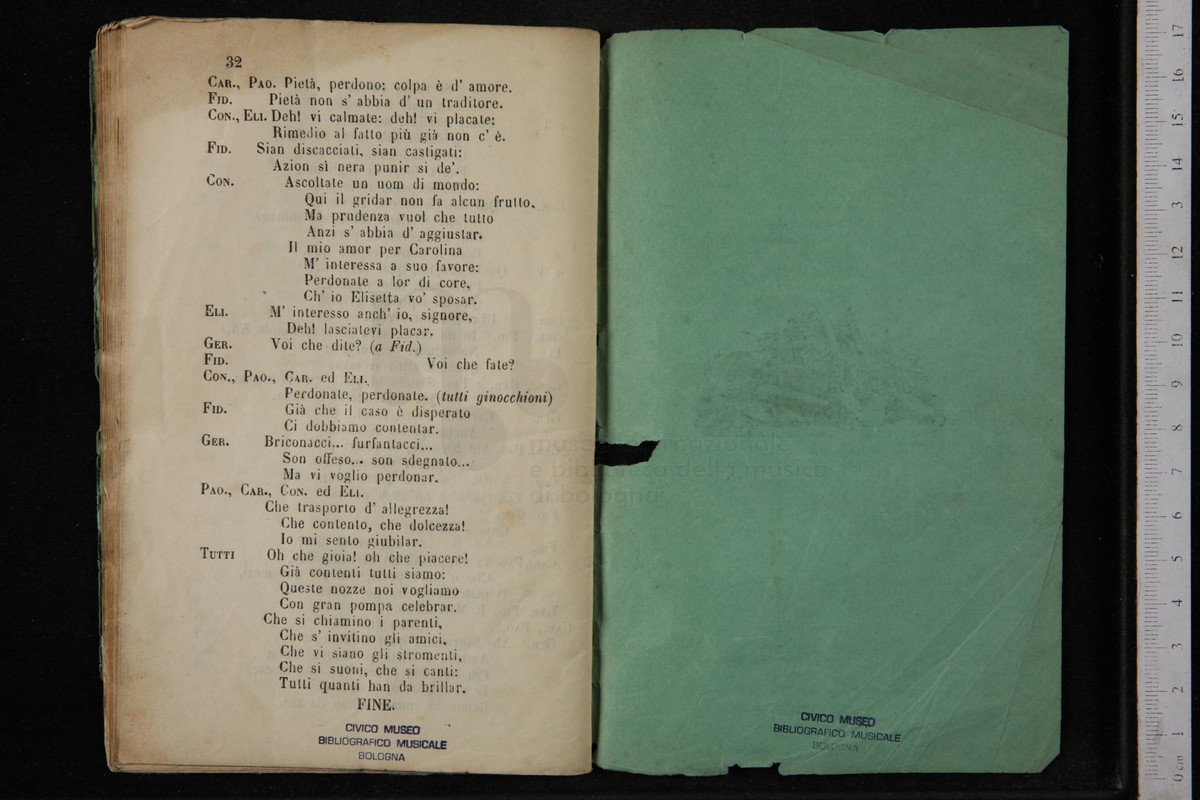 32
CAR., PAO. Pietà, perdono: colpa è d' amore.
FID. Pietà non s' abbia d' un traditore.
CON., ELI. Deh! vi calmate: deh! vi placate:
Rimedio al fatto più già non c' è.
FID. Sian discacciati, sian castigati:
Azion sì nera punir si de'.
CON. Ascoltate un uom di mondo:
Qui il gridar non fa alcun frutto,
Ma prudenza vuol che tutto
Anzi s' abbia d' aggiustar.
Il mio amor per Carolina
M' interessa a suo favore:
Perdonate a lor di core,
Ch' io Elisetta vo' sposar.
ELI. M' interesso anch' io, signore,
Deh! lasciatevi placar.
GER. Voi che dite? (a Fid.)
FID. Voi che fate?
CON., PAO., CAR. ed ELI.
Perdonate, perdonate. (tutti ginocchioni)
FID. Già che il caso è disperato
Ci dobbiamo contentar.
GER. Briconacci... furfantacci...
Son offeso... son sdegnato...
Ma vi voglio perdonar.
PAO., CAR., CON. ed ELI.
Che trasporto d' allegrezza!
Che contento, che dolcezza!
Io mi sento giubilar.
TUTTI Oh che gioia! oh che piacere!
Già contenti tutti siamo:
Queste nozze noi vogliamo
Con gran pompa celebrar.
Che si chiamino i parenti,
Che s' invitino gli amici,
Che vi siano gli stromenti,
Che si suoni, che si canti:
Tutti quanti han da brillar.
FINE.
CIVICO MUSEO
BIBLIOGRAFICO MUSICALE
BOLOGNA
CIVICO MUSEO
BIBLIOGRAFICO MUSICALE
BOLOGNA
0 cm 1 2 3 4 5 6 7 8 9 10 11 12 13 14 15 16 17